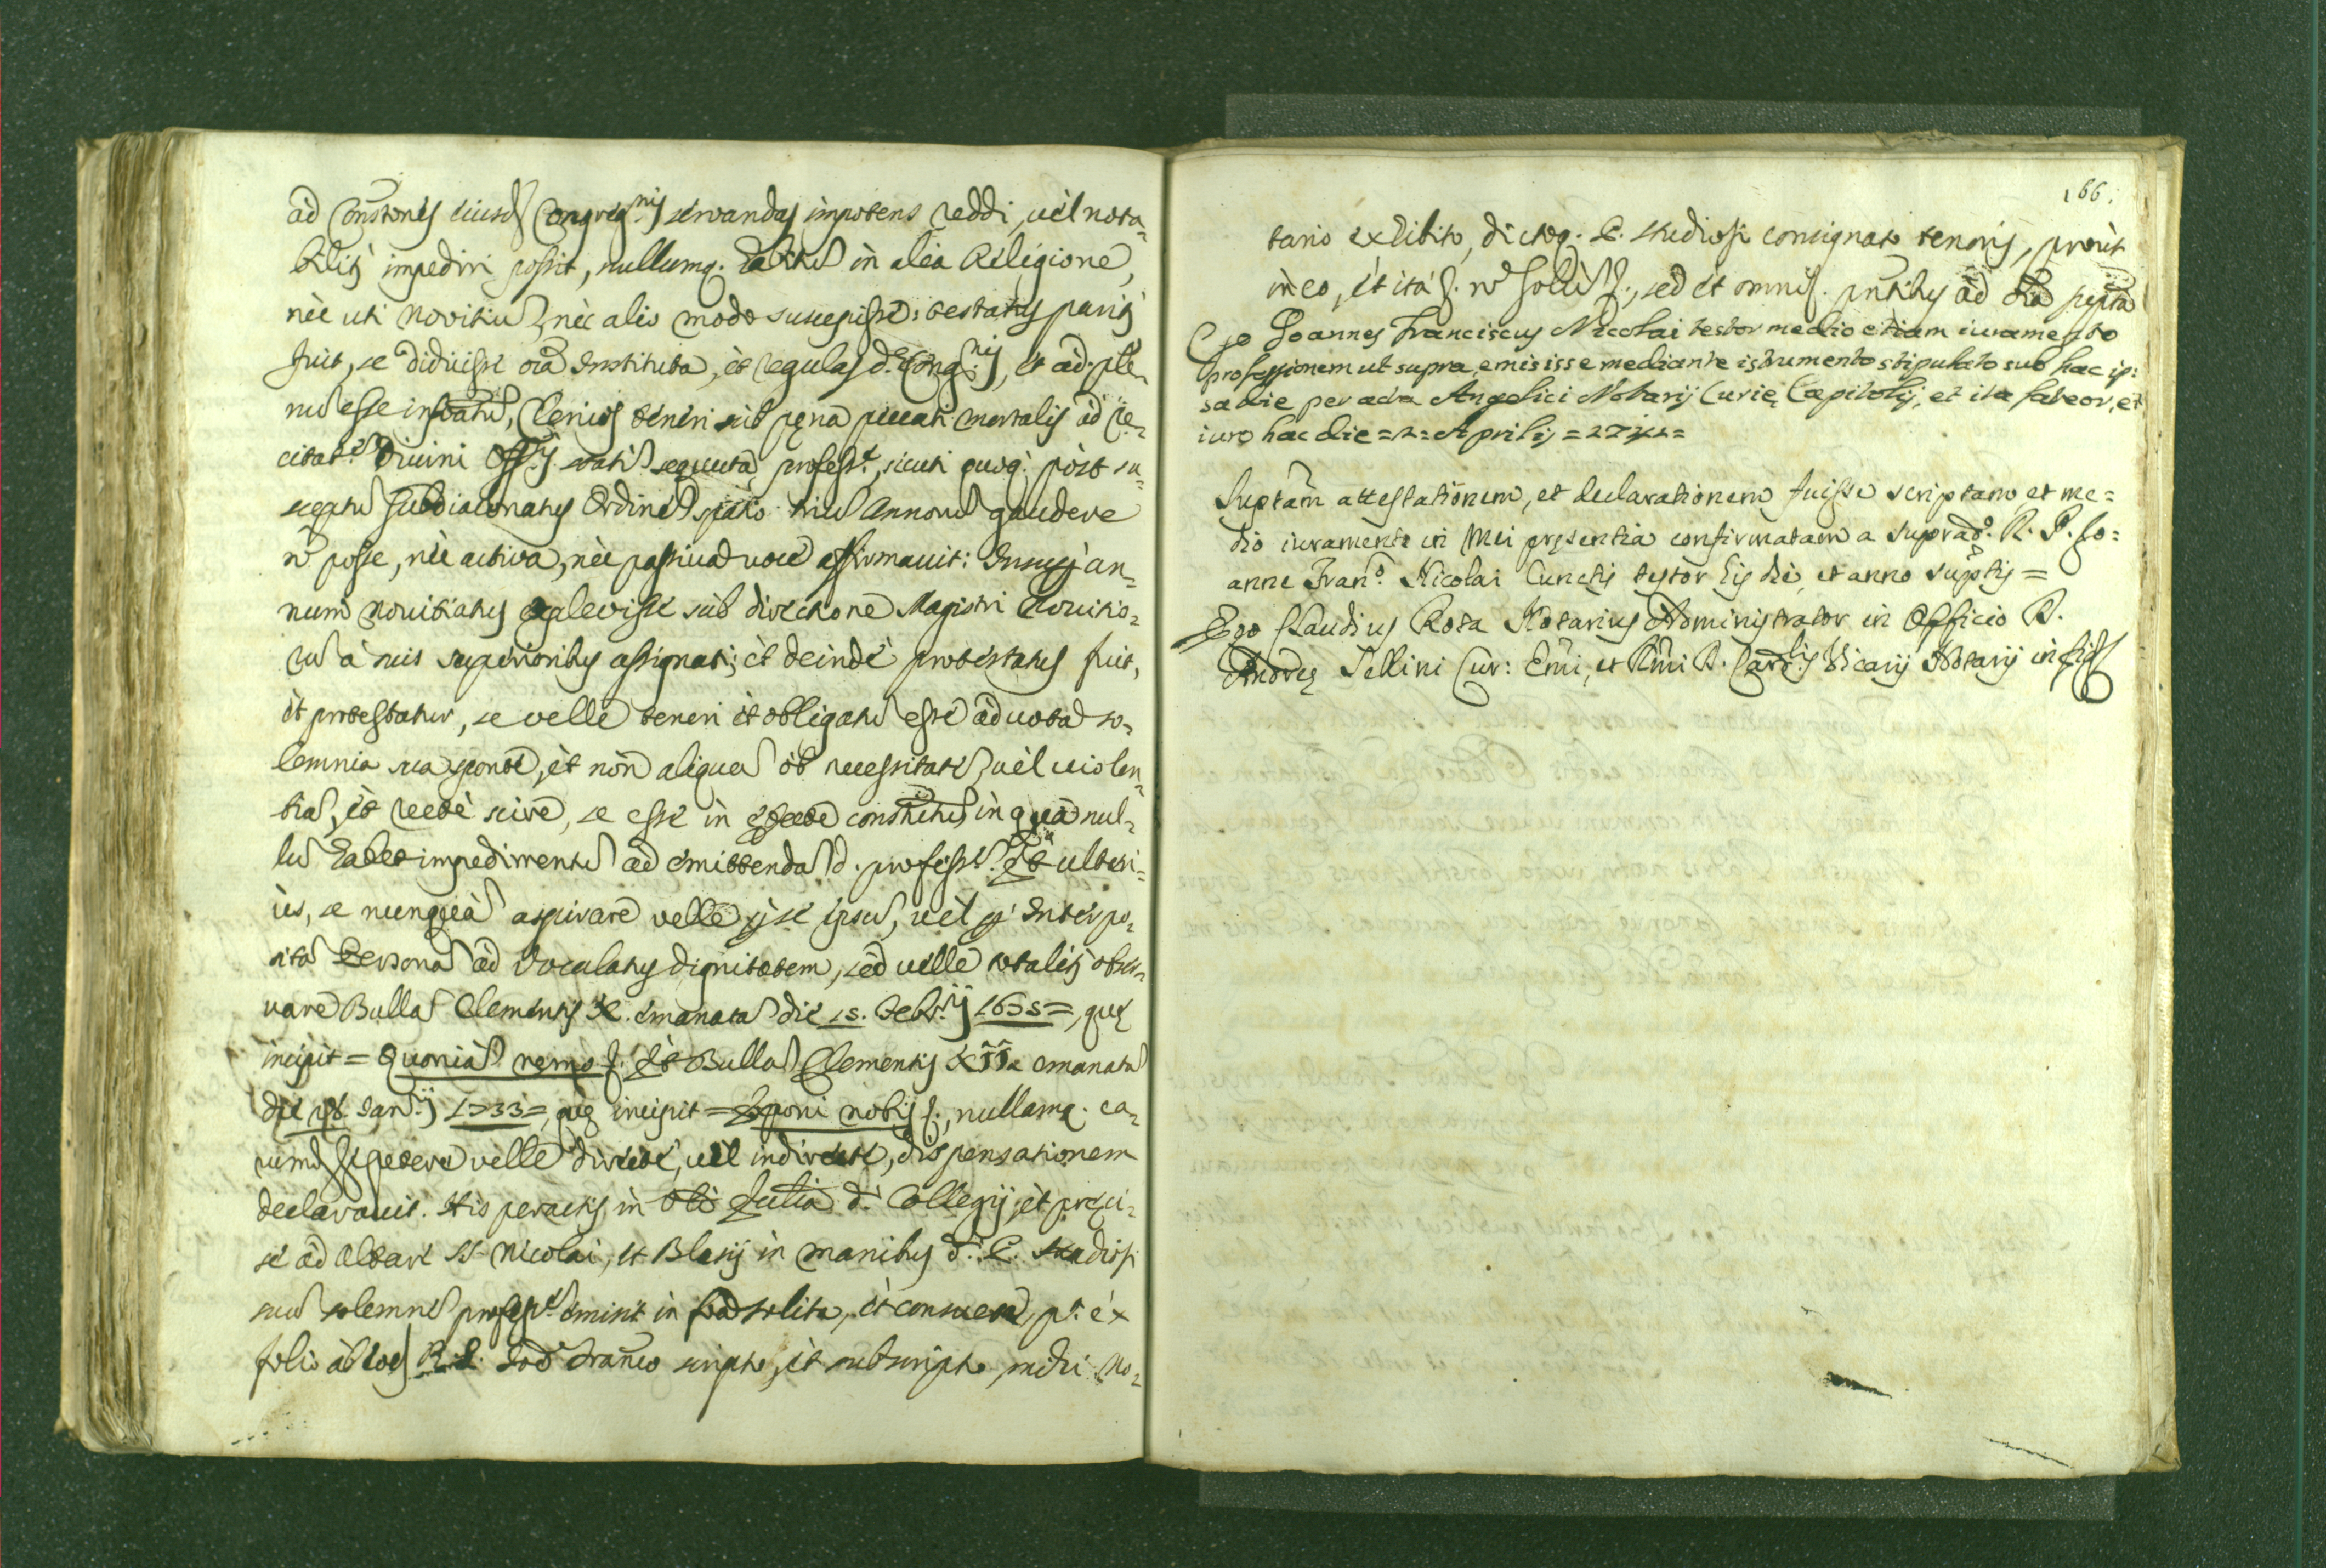 ad Constones eiusd Congreg.nis servandas impotens reddi, vel nota=
biliter impediri possit, nullumq. habitu in alia Religione,
nec uti Novitiu, nec alio modo suscepisse: testatus pariter
fuit, se didicisse oia Instituta, et regulas d. Cong.nis, et ad ple=
nu esse informatu, Clericos teneri sub pena peccati mortalis ad re=
citat.e Divini Off.ij statim sequuta profess.e, sicuti quoq. post su=
sceptu subdiaconatus Ordine spatio triu Annoru gaudere
n posse, nec activa, nec passiva voce affirmavit: Insuper an=
num novitiatus explevisse sub directione Magistri Novitio=
ru a suis superioribus assignati; et deinde protestatus fuit,
et protestatur, se velle teneri et obligatu esse ad vota so=
lemnia sua sponte, et non aliqua ob necessitate, vel violen=
tia, et recte scire, se esse in etate constitutu in qua nul=
lu habet impedimentu ad emittenda d. profess.e Et ulteri=
us, se nunqua aspirare velle per se ipsu, vel per Interpo=
sita Persona ad Vocalatus dignitatem, sed velle totaliter obser=
vare Bulla Clementis X. emanata die 15. Febr.ij 1675=, que
incipit = Quonia nemo &. Et Bulla Clementis XII. emanata
die Jan.ij 1733=, que incipit = Exponi nobis &., nullamq. ea=
rumd se petere velle directe, vel indirecte, dispensationem
declaravit. His peractis in d. Collegij, et preci=
se ad Altare SS. Nicolai, et Blasij in manibus d. P. Studiosi
sua solemne profess.e emisit in forma solita, et consueta, p.t ex
folio ab eod R. P. Joe Franco scripto, et subscripto, mihi No=
166.
tario exhibito, dictoq. P. Studiosi consignato tenoris, prout
in eo, et ita &. n solu &., sed et omni &. pntibus ad oia septa
Ego Joannes Franciscus Nicolai testor medio etiam iuramento
professionem ut supra emisisse mediante istrumento stipulato sub hac ip:
sa die per acta Angelici Notarij Curie Capitolij, et ita fateor, et
iuro hac die = 2 = Aprilis =
Suptam attestationem, et declarationem fuisse scriptam et me=
dio iuramento in Mei presentia confirmatam a suprad.o R. P. Jo=
anne Fran.o Nicolai Cunctis testor his die, et anno suptis =
Ego Claudius Rota Notarius Administrator in Officio D.
Andreę Sellini Cur: Emi, et Rmi D. Card.lis Vicarij Notarij in fid